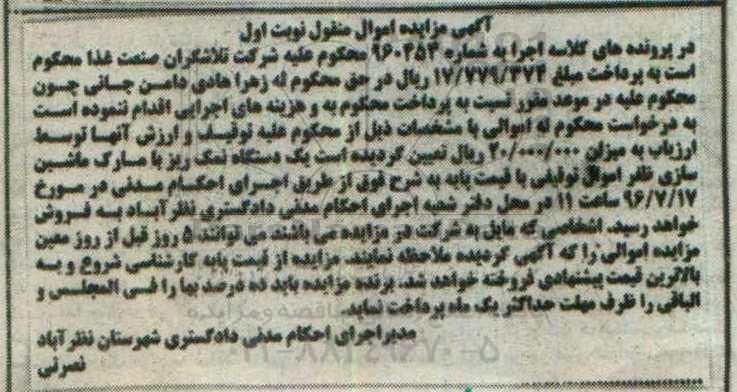 آگهی مزایده اموال منقول نوبت اول
در پرونده های کلاسه اجرا به شماره ۹۶۰۳۵۳ محکوم علیه شرکت تلاشگران صنعت غذا محکوم
است به پرداخت مبلغ ۱۷/۷۷۹/۳۷۴ ریال در حق محکوم له زهرا هادی دامن جانی چون
محکوم علیه در موعد مقرر نسبت به پرداخت محکوم به و هزینه های اجرایی اقدام ننموده است
به درخواست محکوم له اموالی با مشخصات ذیل از محکوم علیه توقیف و ارزش آنها توسط
ارزیاب به میزان ۲۰/۰۰۰/۰۰۰ ریال تعیین گردیده است یک دستگاه نمک ریز با مارک ماشین
سازی ظفر اموال توقیفی با قیمت پایه به شرح فوق از طریق اجرای احکام مدنی در مورخ
۹۶/۷/۱۷ ساعت ۱۱ در محل دفتر شعبه اجرای احکام مدنی دادگستری نظرآباد به فروش
خواهد رسید. اشخاصی که مایل به شرکت در مزایده می باشند می توانند ۵ روز قبل از روز معین
مزایده اموالی را که آگهی گردیده ملاحظه نمایند. مزایده از قیمت پایه کارشناسی شروع و به
بالاترین قیمت پیشنهادی فروخته خواهد شد. برنده مزایده باید ده درصد بها را فی المجلس و
الباقی را ظرف مهلت حداکثر یک ماه پرداخت نماید.
مدیر اجرای احکام مدنی دادگستری شهرستان نظرآباد
نصرتی
۰۲۱-۸۸۳۴۹۶۷۰-۵